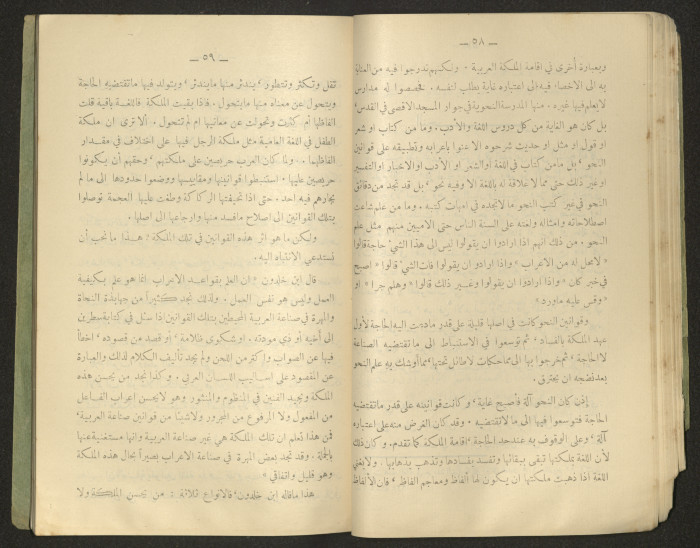 — ٥٨ —
وبعبارة أخرى في اقامة الملكة العربية . ولكنهم تدرجوا فيه من العناية
به الى الاخصاء فيه الى اعتباره غاية يطلب لنفسه . فخصصوا له مدارس
لا يعلم فيها غيره . منها المدرسة النحوية في جوار المسجد الاقصى في القدس
بل كان هو الغاية من كل دروس اللغة والأدب . وما من كتاب او شعر
او قول او مثل او حديث شرحوه الا عنوا باعرابه وتطبيقه على قوانين
النحو ، بل ما من كتاب في اللغة او الشعر او الأدب او الاخبار او التفسير
او غير ذلك حتى مما لا علاقة له باللغة الا وفيه نحو ، بل قد تجد من دقائق
النحو في غير كتب النحو ما لا تجده في امهات كتبه . وما من علم شاعت
اصطلاحاته وامثاله ولغته على السنة الناس حتى الاميين منهم مثل علم
النحو . من ذلك انهم اذا ارادوا ان يقولوا ليس لهذا الشيء حاجة قالوا
« لا محل له من الاعراب » واذا ارادوا ان يقولوا فات الشيء قالوا « اصبح
في خبر كان » واذا ارادوا ان يقولوا وغير ذلك قالوا « وهلم جرا » او
« وقس عليه ماورد »
وقوانين النحو كانت في اصلها قليلة على قدر مادعت اليه الحاجة لأول
عهد الملكة بالفساد ، ثم توسعوا في الاستنباط الى ما تقتضيه الصناعة
لا الحاجة ، ثم خرجوا بها الى مماحكات لا طائل تحتها مما أوشك به علم النحو
بعد نضجه ان يحترق .
إذن كان النحو آلة فأصبح غاية ، وكانت قوانينه على قدر ما تقتضيه
الحاجة فتوسعوا فيها الى ما لا تقتضيه . وقد كان الغرض منه على اعتباره
آلة ، وعلى الوقوف به عند حد الحاجة ، اقامة الملكة كما تقدم . وكان ذلك
لأن اللغة بملكتها تبقى ببقائها وتفسد بفسادها وتذهب بذهابها . ولا يغني
اللغة اذا ذهبت ملكتها ان يكون لها ألفاظ ومعاجم الفاظ ، فان الألفاظ
— ٥٩ —
تقل وتكثر وتتطور ، يندثر منها ما يندثر ، ويتولد فيها ما تقتضيه الحاجة
ويتحول عن معناه منها ما يتحول . فاذا بقيت الملكة فاللغة باقية قلت
الفاظها أم كثرت وتحولت عن معانيها ام لم تتحول . ألا ترى ان ملكة
الطفل في اللغة العامية مثل ملكة الرجل فيها على اختلاف في مقدار
الفاظهما . ولما كان العرب حريصين على ملكتهم ، وحقهم أن يكونوا
حريصين عليها ، استنبطوا قوانينها ومقاييسها ووضعوا حدودها الى ما لم
يجارهم فيه احد . حتى اذا تحيفتها الركاكة وطغت عليها العجمة توصلوا
بتلك القوانين الى اصلاح ما فسد منها وارجاعها الى اصلها .
ولكن ما هو اثر هذه القوانين في تلك الملكة ? هذا ما نحب أن
نستدعي الانتباه اليه .
قال ابن خلدون « ان العلم بقواعد الاعراب انما هو علم بكيفية
العمل وليس هو نفس العمل . ولذلك نجد كثيراً من جهابذة النحاة
والمهرة في صناعة العربية المحيطين بتلك القوانين اذا سئل في كتابة سطرين
الى أخيه او ذي مودته . او شكوى ظلامة ، او قصد من قصوده ، اخطأ
فيها عن الصواب واكثر من اللحن ولم يجد تأليف الكلام لذلك والعبارة
عن المقصود على اساليب اللسان العربي . وكذا نجد من يحسن هذه
الملكة ويجيد الفنين في المنظوم والمنثور وهو لا يحسن إعراب الفاعل
من المفعول ولا المرفوع من المجرور ولا شيئا من قوانين صناعة العربية ،
فمن هذا تعلم ان تلك الملكة هي غير صناعة العربية وانها مستغنية عنها
بالجملة . وقد نجد بعض المهرة في صناعة الاعراب بصيراً بحال هذه الملكة
وهو قليل واتفاقي »
هذا ما قاله ابن خلدون ، فالانواع ثلاثة : من يحسن الملكة ولا